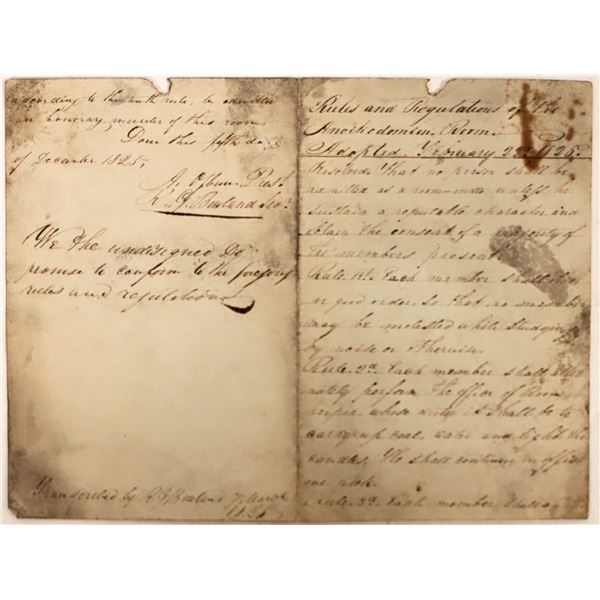 according to the tenth rule, be admitted
an honorary member of this room
Done this fifth day
of December 1825,
Pres.t
Sec.y
We the undersigned do
promise to conform to the forgoing
rules and regulations
Transcribed by
Rules and Regulations of the
Room.
Adopted. February 1825.
Resolved that no person shall be
admitted as a room-mate unless he
sustain a reputable character and
obtain the consent of a majority of
the members present.
Rule 1st. Each member shall
in good order. So that no member
may be molested while studying
by noise or otherwise.
Rule. 2d. Each member shall
perform the office of room
keeper whose duty it shall be to
carry up coal, water and light the
candles. He shall continue in office
one week.
Rule. 3d. Each member shall